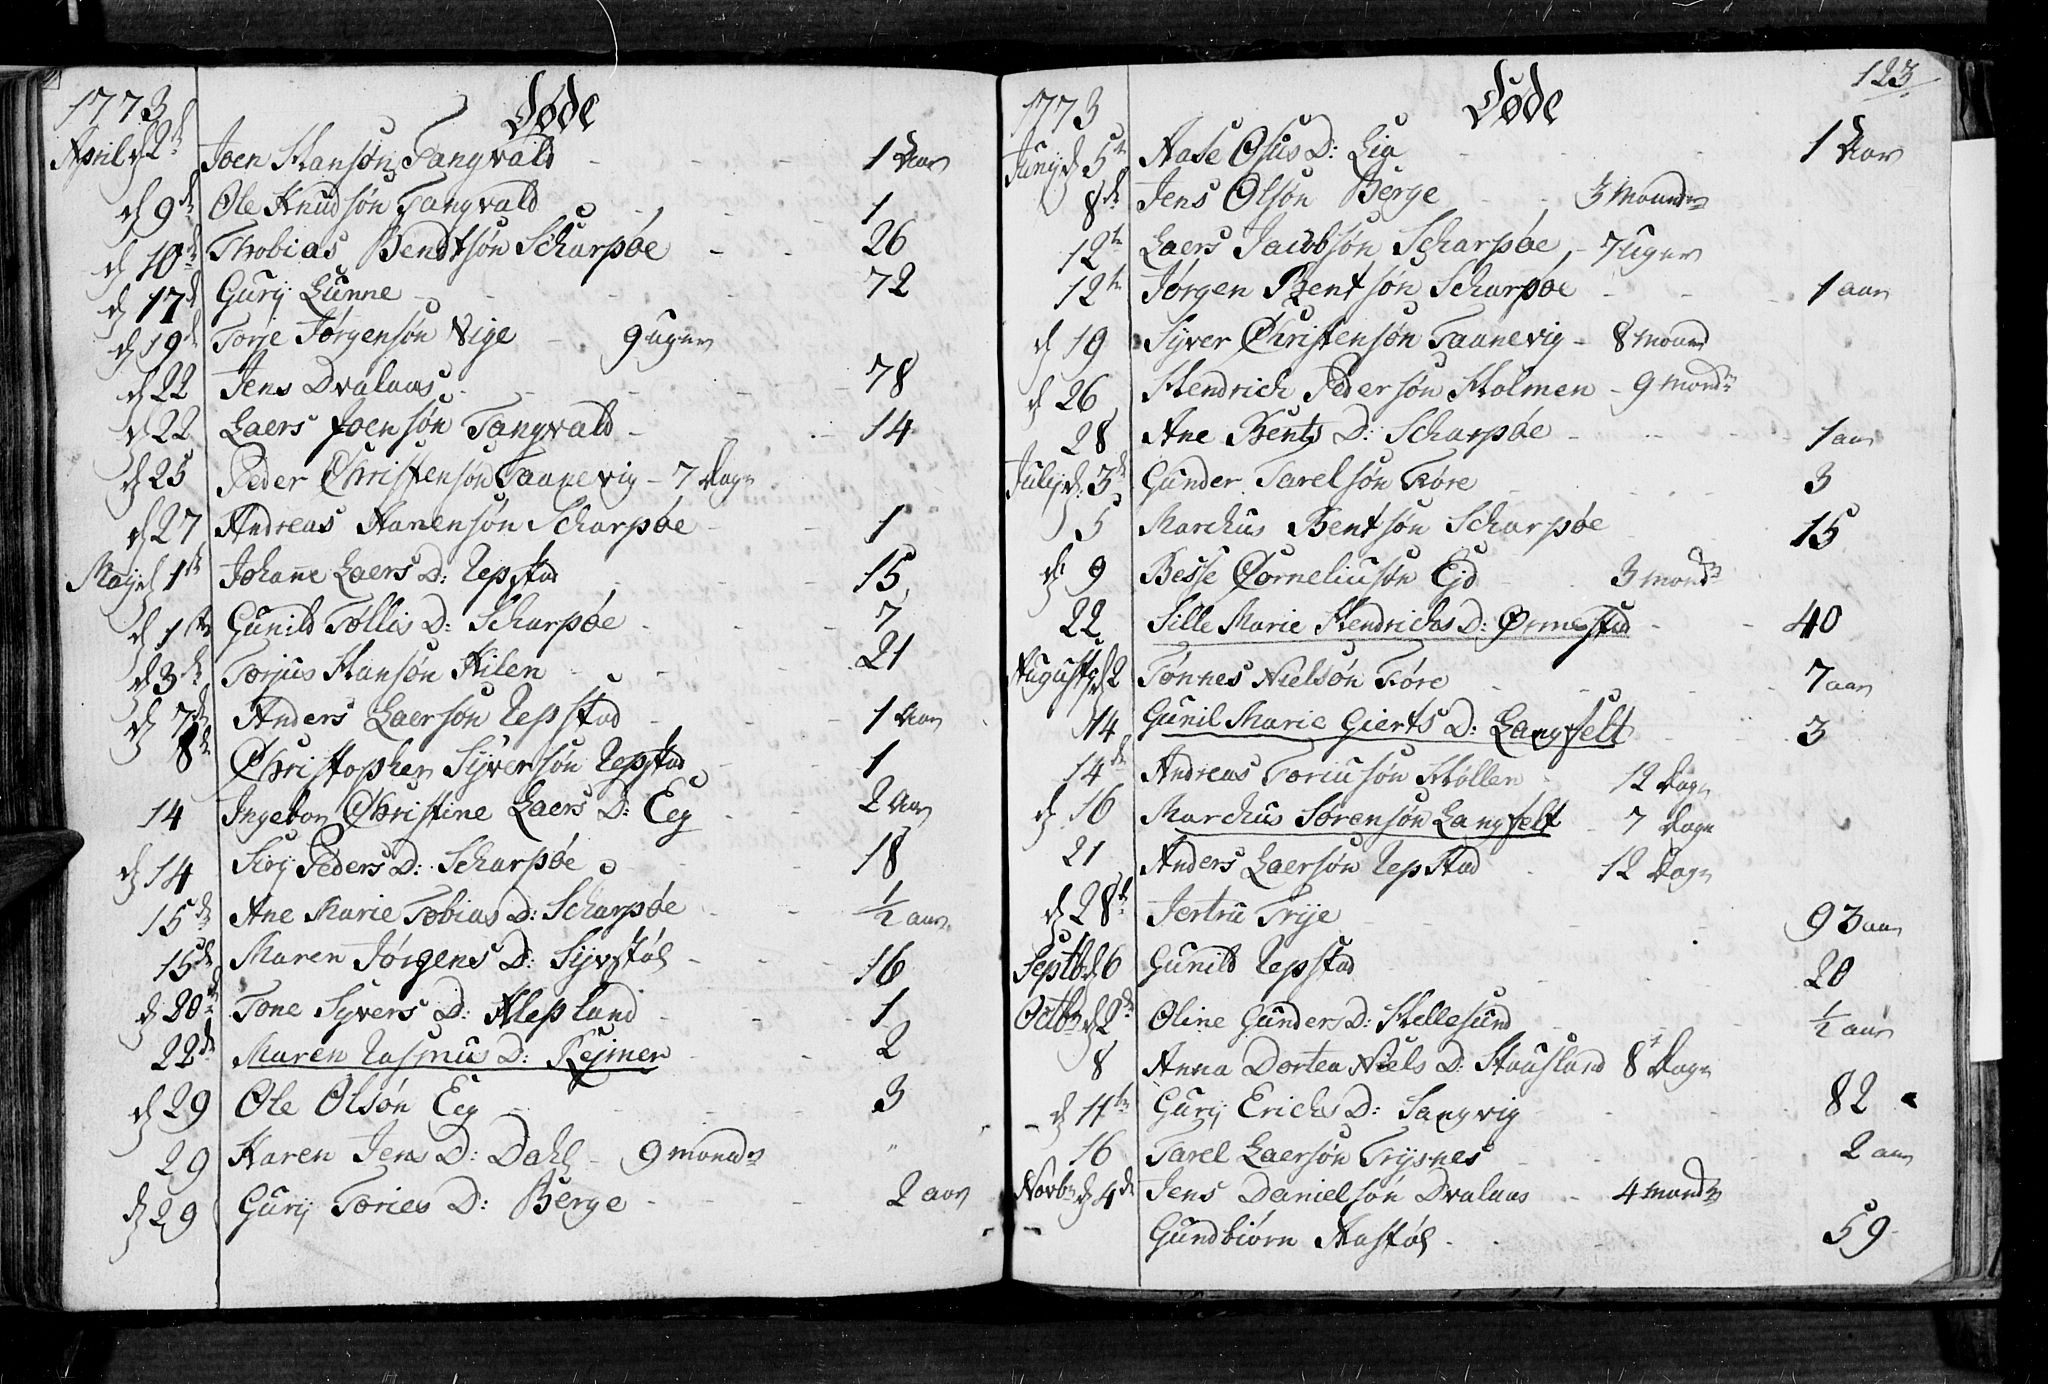 1773 Døde
April d 2d Joen Hansøn Tangvald 1 Aar
d 9d Ole Knudsøn Tangvald 1
d 10d Thobias Bendtsøn Scharpøe 26
d 17d Gurij Lunne 72
d 19d Torje Jørgensøn Vige 9 uger
d 22 Jens Dvalaas 78
d 22 Laers Joensøn Tangvald 14
d 25 Peder Christensøn Taanevig 7 Dage
d 27 Andreas Hanensøn Scharpøe 1
Maij d 1st Johanne Laers D: Repstad 15
d 1ste Gunild Tollis D: Scharpøe 7
d 3d Torjus Hansøn Kilen 21
d 7de Anders Laersøn Repstad 1 Aar
8de Christopher Sijversøn Repstad 1
14 Ingebor Christine Laers D: Eeg 2 Aar
d 14 Sirij Peders D: Scharpøe 18
15d Ane Marie Tobias D: Scharpøe ½ aar
15de Maren Jørgens D: Sijvstøl 16
d 20d Tone Syvers D: Klepland 1
22de Maren Rasmus D: Rejmer 2
d 29 Ole Olsøn Eeg 3
29 Karen Jens D: Dahl 9 monder
d 29 Gurij Tories D: Berge 2 aar
123
1773 Døde
Junij d 5te Aase Osus D: Lia 1 Aar
8de Jens Olsøn Berge 3 Maander
12te Laers Jacobsøn Scharpøe 7 uger
12te Jørgen Bentsøn Scharpøe 1 aar
d 19 Syver Christensøn Taanevig 8 maand
d 26 Hendrich Pedersøn Holmen 9 mondr
28 Ane Bents D: Scharpøe 1 aar
Julij d: 3de Gunder Tarelsøn Føre 3
5 Marchus Bentsøn Scharpøe 15
d 9 Besse Corneliusøn Ejd 3 mondr
22 Sille Marie Hendrichs D: Ormestad 40
Augusti d 2 Tønnes Nielsøn Føre 7 aar
14 Gunil Marie Gierts D: Langfelt 3
14de Andreas Toriusøn Møllen 12 Dage
d 16 Marchus Sørensøn Langfelt 7 Dage
21 Anders Laersøn Repstad 12 Dage
d 28d Jertru Trije 93 aar
Septb d 6 Gunild Repstad 20
Octbr d 2de Oline Gunders D: Hellesund ½ aar
8 Anna Dortea Niels D: Stausland 8 Dage
d 11te Gurij Erichs D: Langvig 82
16 Tarel Laersøn Trysnes 2 aar
Novbr d 4de Jens Danielsøn Dvalaas 4 mondr
Gundbiørn Aastøl 59